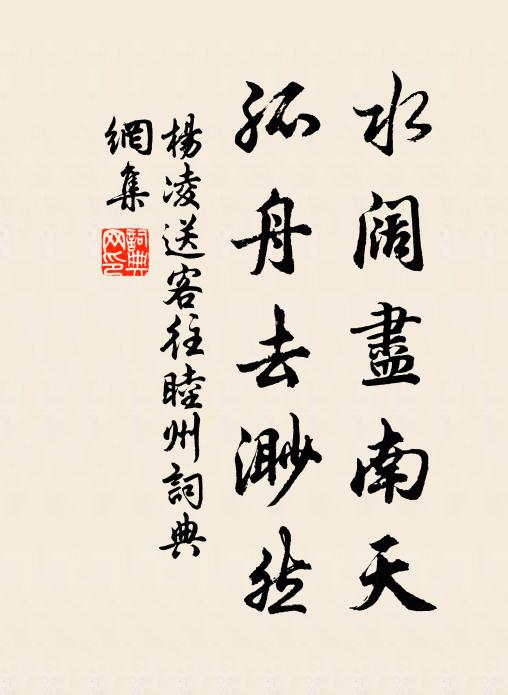 水阔盡南天
孤舟去渺然
楊凌送客往睦州詞典
網集
詞典
网印